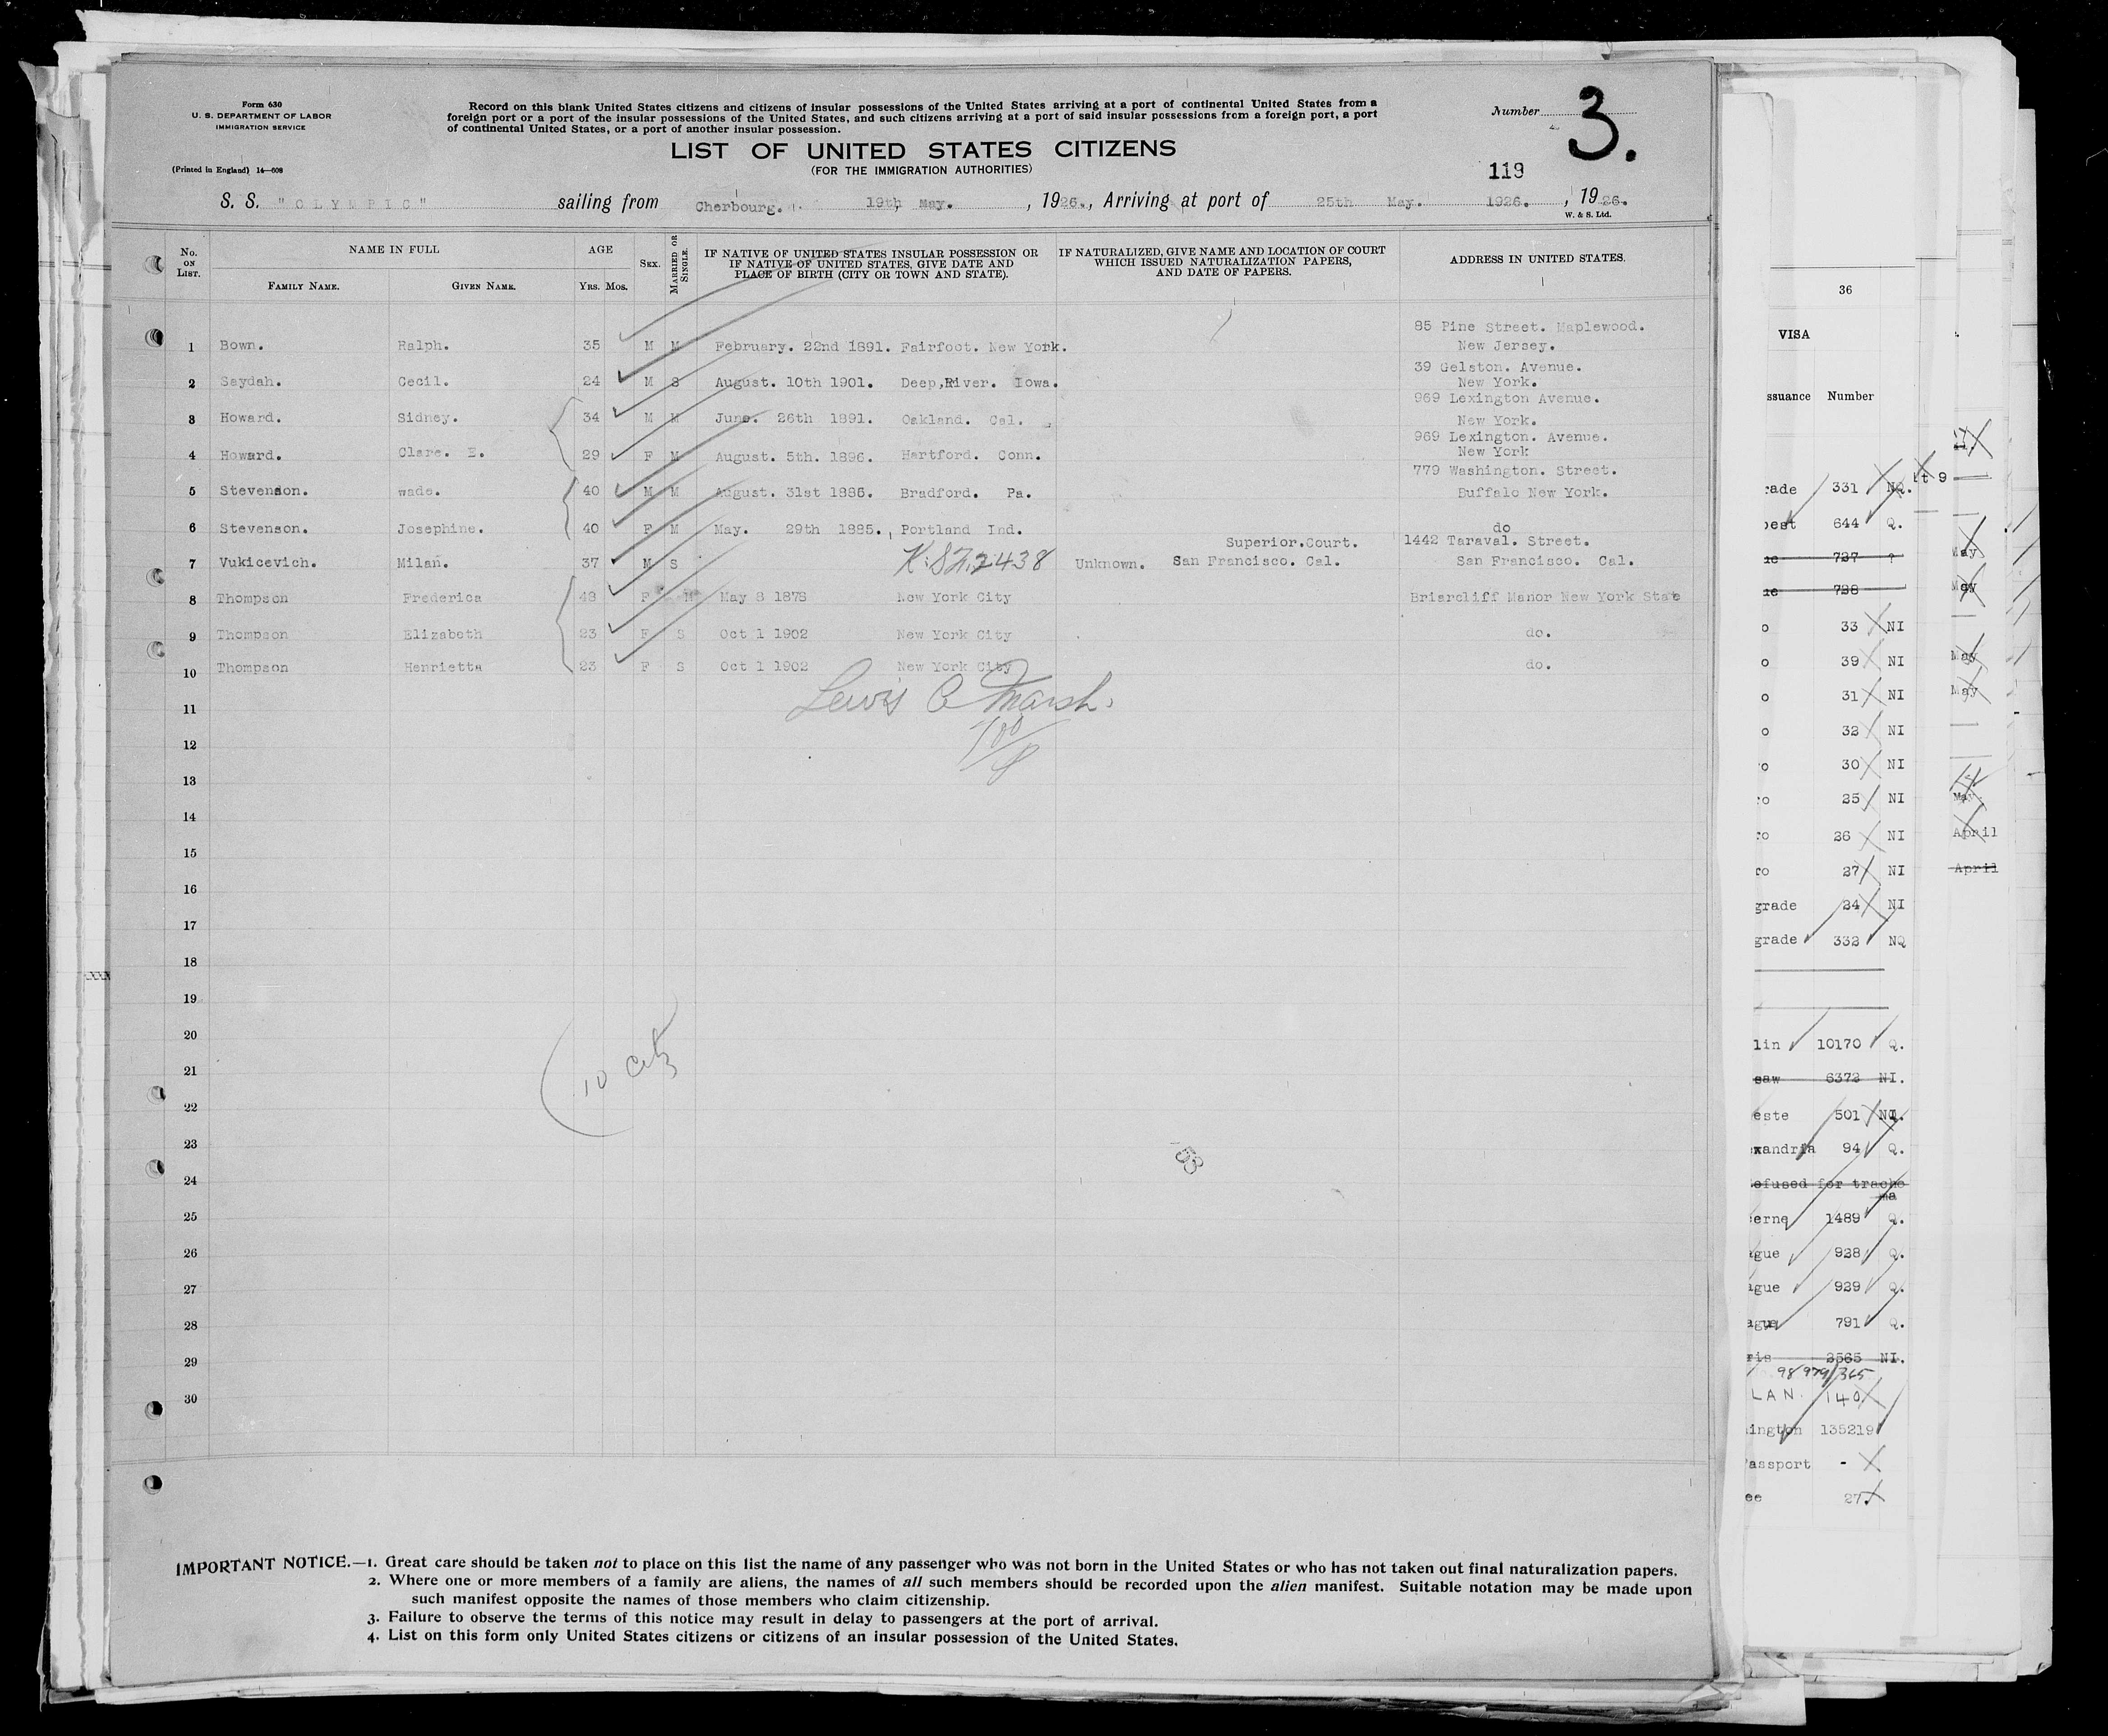 Form 630
U. S. DEPARTMENT OF LABOR
IMMIGRATION SERVICE
(Printed in England) 14—608
Record on this blank United States citizens and citizens of insular possessions of the United States arriving at a port of continental United States from a
foreign port or a port of the insular possessions of the United States, and such citizens arriving at a port of said insular possessions from a foreign port, a port
of continental United States, or a port of another insular possession.
Number 3.
LIST OF UNITED STATES CITIZENS
(FOR THE IMMIGRATION AUTHORITIES)
119
S. S. "OLYMPIC" sailing from Cherbourg. 19th May. , 1926., Arriving at port of 25th May. 1926. , 1926.
W. & S. Ltd.
No. ON LIST. NAME IN FULL AGE SEX. MARRIED OR SINGLE. IF NATIVE OF UNITED STATES INSULAR POSSESSION OR IF NATIVE OF UNITED STATES, GIVE DATE AND PLACE OF BIRTH (CITY OR TOWN AND STATE). IF NATURALIZED, GIVE NAME AND LOCATION OF COURT WHICH ISSUED NATURALIZATION PAPERS, AND DATE OF PAPERS. ADDRESS IN UNITED STATES.
FAMILY NAME. GIVEN NAME. YRS. MOS.
85 Pine Street. Maplewood.
1 Bown. Ralph. 35 M M February. 22nd 1891. Fairfoot. New York. New Jersey.
39 Gelston. Avenue.
2 Saydah. Cecil. 24 M S August. 10th 1901. Deep,River. Iowa. New York.
969 Lexington Avenue.
3 Howard. Sidney. 34 M M June. 26th 1891. Oakland. Cal. New York.
969 Lexington. Avenue.
4 Howard. Clare. E. 29 F M August. 5th. 1896. Hartford. Conn. New York
779 Washington. Street.
5 Stevenson. wade. 40 M M August. 31st 1885. Bradford. Pa. Buffalo New York.
6 Stevenson. Josephine. 40 F M May. 29th 1885. Portland Ind. do
Superior.Court. 1442 Taraval. Street.
7 Vukicevich. Milan. 37 M S K.SZ.2438 Unknown. San Francisco. Cal. San Francisco. Cal.
8 Thompson Frederica 48 F M May 8 1878 New York City Briarcliff Manor New York State
9 Thompson Elizabeth 23 F S Oct 1 1902 New York City do.
10 Thompson Henrietta 23 F S Oct 1 1902 New York City do.
Lewis C Marsh.
11
12
13
14
15
16
17
18
19
20
21
22
23
24
25
26
27
28
29
30
10 Citz
53
IMPORTANT NOTICE.—1. Great care should be taken not to place on this list the name of any passenger who was not born in the United States or who has not taken out final naturalization papers.
2. Where one or more members of a family are aliens, the names of all such members should be recorded upon the alien manifest. Suitable notation may be made upon
such manifest opposite the names of those members who claim citizenship.
3. Failure to observe the terms of this notice may result in delay to passengers at the port of arrival.
4. List on this form only United States citizens or citizens of an insular possession of the United States.
36
VISA
ssuance Number
rade 331 NQ.
pest 644 Q.
ue 727 ?
ue 728
o 33 NI
o 39 NI
o 31 NI
o 32 NI
ro 30 NI
ro 25 NI
ro 26 NI
ro 27 NI
grade 24 NI
grade 332 NQ
lin 10170 Q.
saw 6372 NI.
este 501 NQ.
xandria 94 Q.
efused for tracho
ma
erne 1489 Q.
ague 928 Q.
ague 929 Q.
ague 791 Q.
ris 2565 NI.
98979/365
LAN. 140
ington 135219
assport -
ee 27
t 9
May
May
May
May
May
April
April